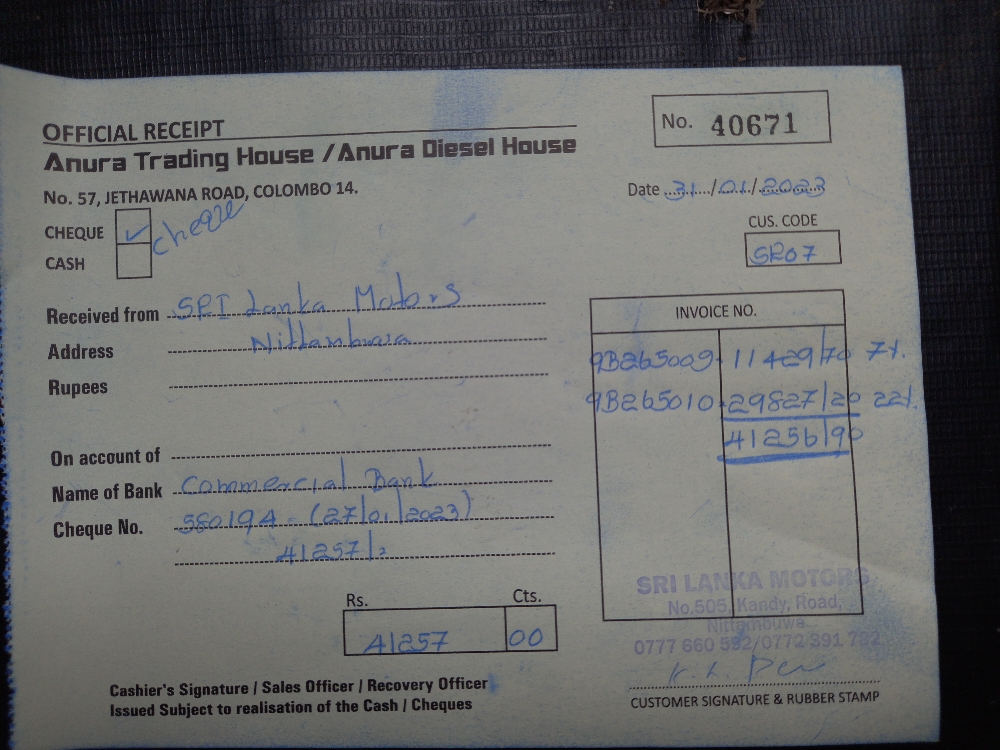 OFFICIAL RECEIPT
No. 40671
Anura Trading House / Anura Diesel House
No. 57, JETHAWANA ROAD, COLOMBO 14.
Date 31/01/2023
CHEQUE ✓ cheque
CASH
CUS. CODE
SR07
Received from SRI Lanka Motors
Address Nittambuwa
Rupees
INVOICE NO.
9B265009 11429/70 7%.
9B265010 29827/20 22%.
41256/90
On account of
Name of Bank Commercial Bank
Cheque No. 580194 - (27/01/2023)
41257/=
Rs. Cts.
41257 00
SRI LANKA MOTORS
No.505, Kandy, Road,
Nittambuwa.
0777 660 592/0772 391 782
Cashier's Signature / Sales Officer / Recovery Officer
Issued Subject to realisation of the Cash / Cheques
CUSTOMER SIGNATURE & RUBBER STAMP